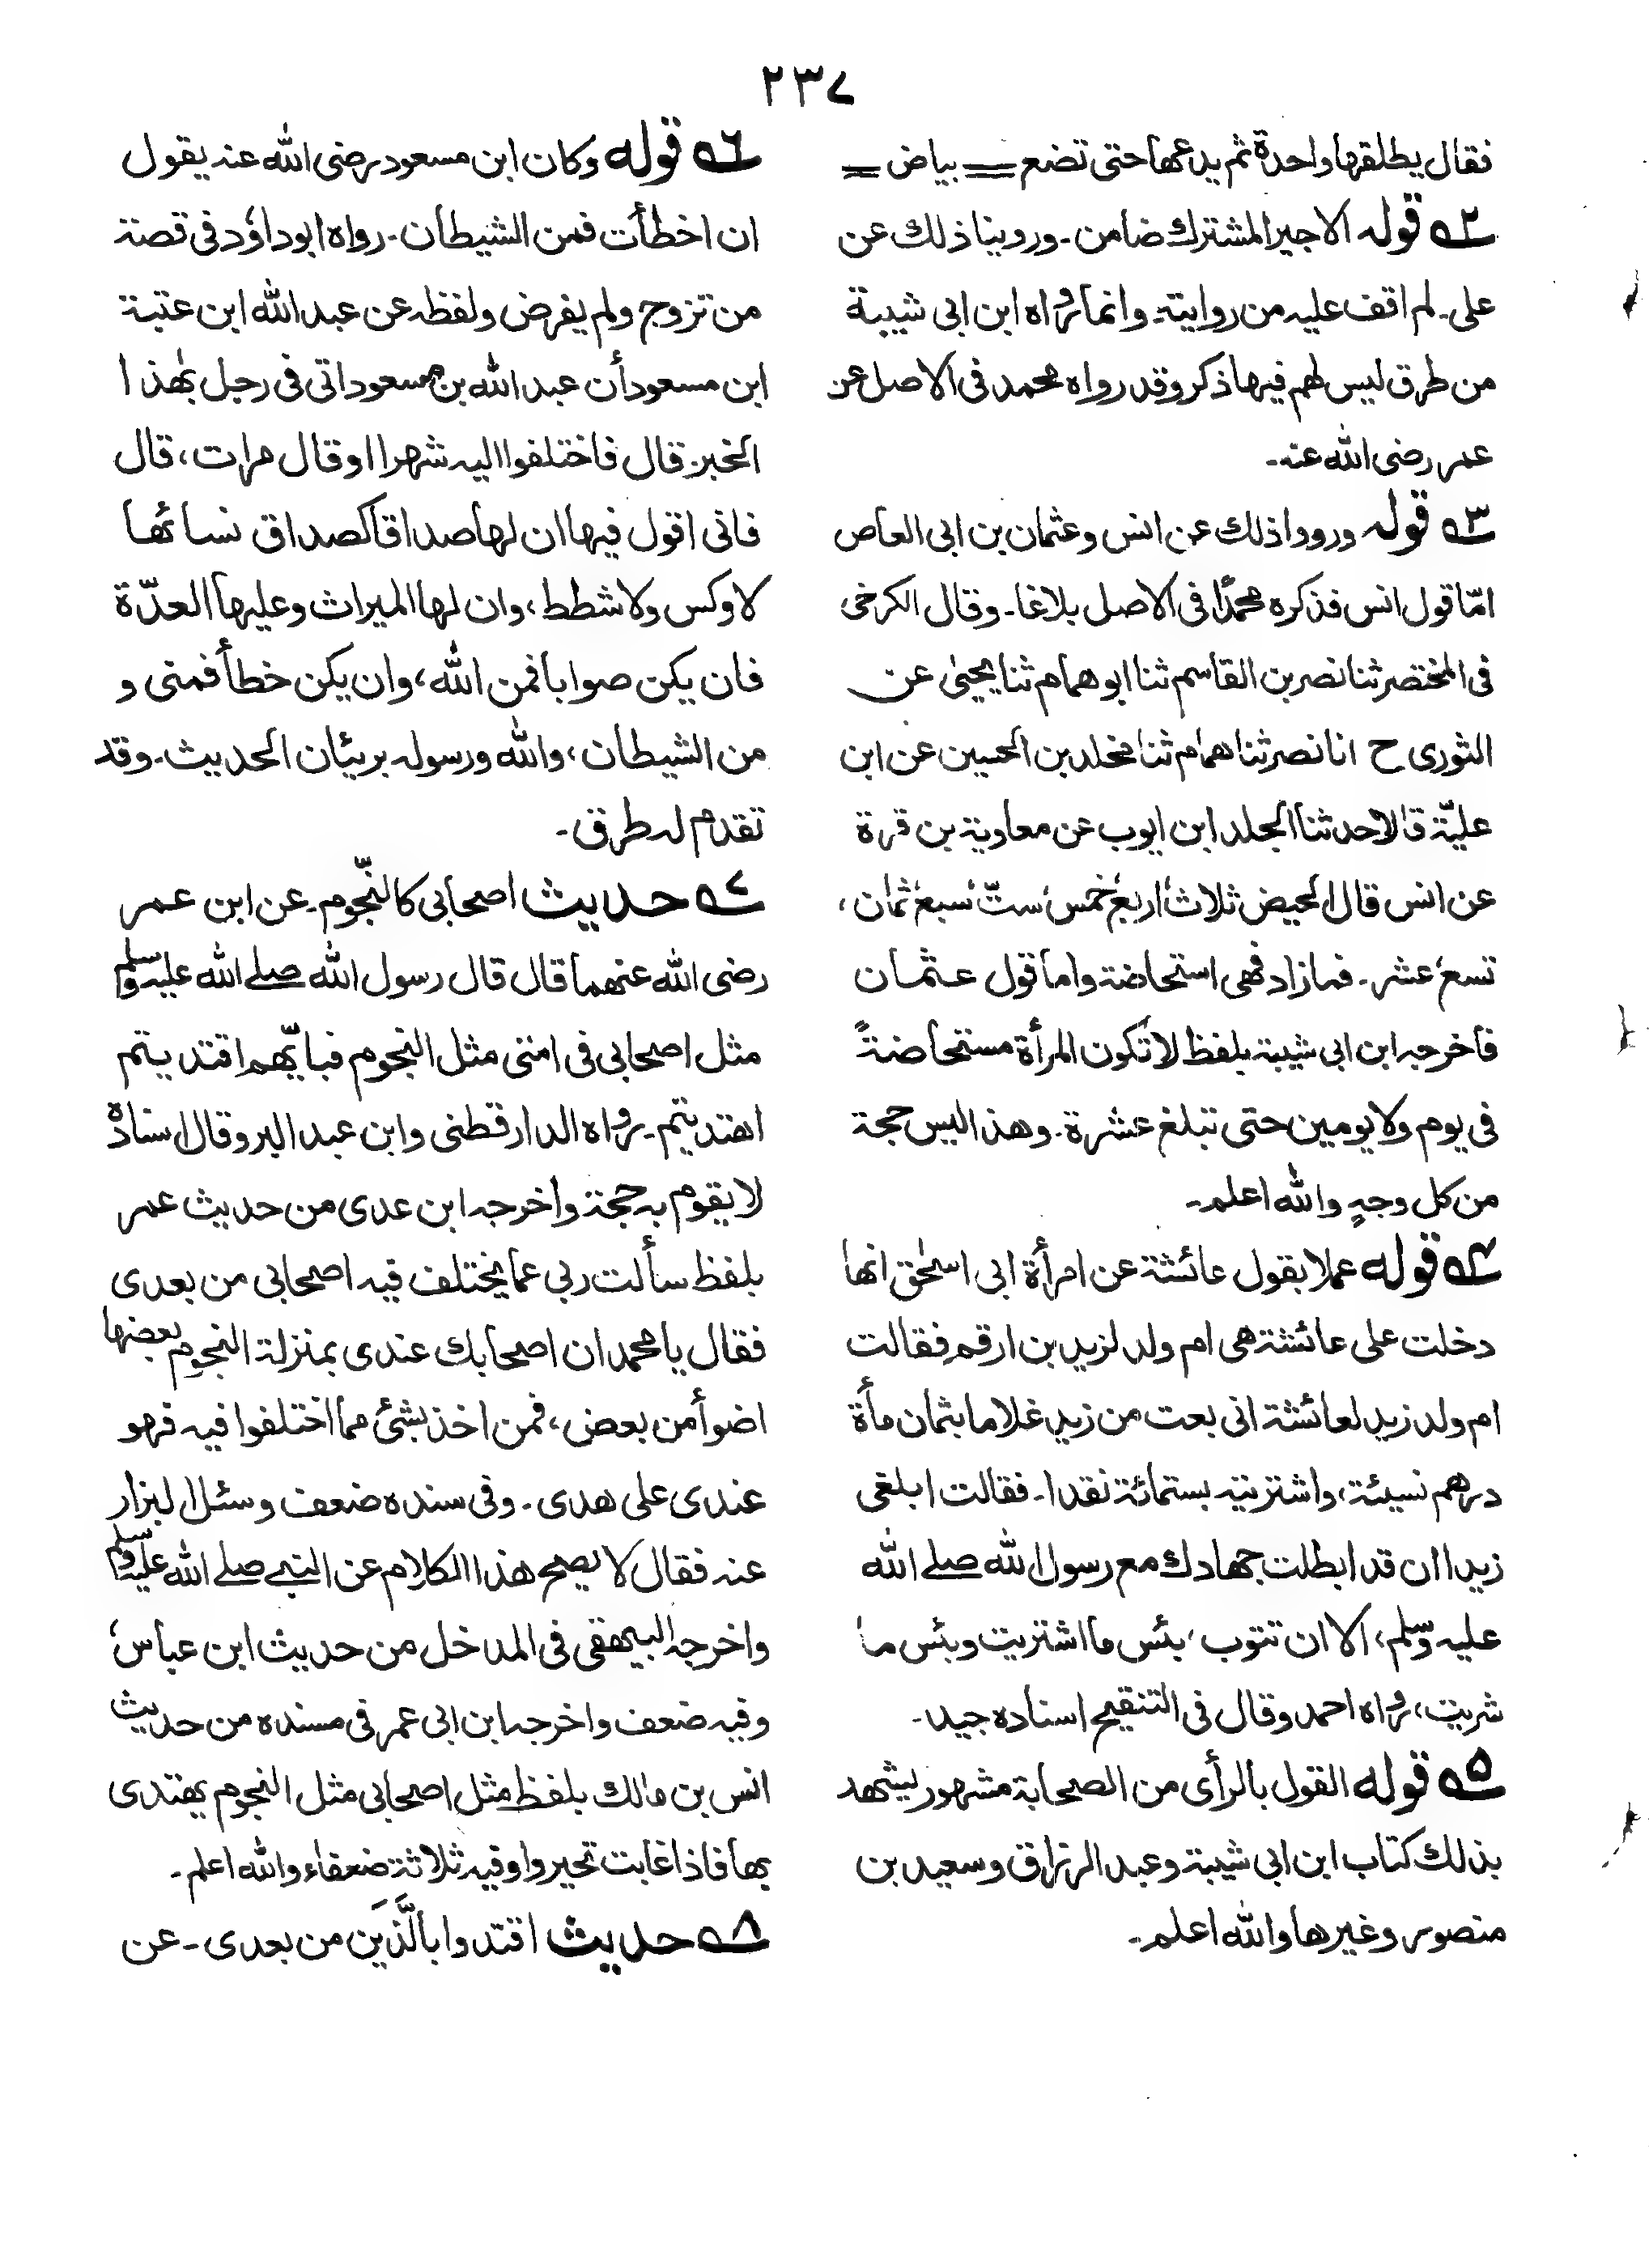 ٢٣٧
فقال يطلقها واحدة ثم يدعها حتى تضع == بياض ==
٢ـه قوله الاجير المشترك ضامن ـ وروينا ذلك عن
على ـ لم اقف عليه من روايته ـ وانما رواه ابن ابى شيبة
من طرق ليس لهم فيها ذكر وقد رواه محمد فى الاصل عن
عمر رضى الله عنه ـ
٣ـه قوله ورووا ذلك عن انس وعثمان بن ابى العاص
امّا قول انس فذكره محمدًا فى الاصل بلاغا ـ وقال الكرخى
فى المختصر ثنا نصر بن القاسم ثنا ابو همام ثنا يحيىٰ عن
الثورى ح انا نصر ثنا همام ثنا مخلد بن الحسين عن ابن
عليّة قالا حدثنا الجلد ابن ايوب عن معاوية بن قرة
عن انس قال الحيض ثلاث، اربع، خمس، ستّ، سبع، ثمان،
تسع، عشر ـ فما زاد فهى استحاضة واما قول عثمان
فأخرجه ابن ابى شيبة بلفظ لا تكون المرأة مستحاضةً
فى يوم ولا يومين حتى تبلغ عشرة ـ وهذا ليس حجة
من كل وجهٍ والله اعلم ـ
٤ـه قوله عملا بقول عائشة عن امرأة ابى اسحٰق انها
دخلت على عائشة هى ام ولد لزيد بن ارقم فقالت
ام ولد زيد لعائشة انى بعت من زيد غلاما بثمان مأة
درهم نسيئة، واشتريته بستمائة نقدا ـ فقالت ابلغى
زيدا ان قد ابطلت جهادك مع رسول الله صلے الله
عليه وسلم، الا ان تتوب، بئس ما اشتريت وبئس ما
شريت، رواه احمد وقال فى التنقيح اسناده جيد ـ
٥ـه قوله القول بالرأى من الصحابة مشهور ليشهد
بذلك كتاب ابن ابى شيبة وعبد الرزاق وسعيد بن
منصور وغيرها والله اعلم ـ
٦ـه قوله وكان ابن مسعود رضى الله عنه يقول
ان اخطأت فمن الشيطان ـ رواه ابو داؤد فى قصة
من تزوج ولم يفرض ولفظه عن عبد الله ابن عتبة
ابن مسعود أن عبد الله بن مسعود اتى فى رجل بهٰذا
الخبر ـ قال فاختلفوا اليه شهرا او قال مرات، قال
فانى اقول فيها ان لها صداقا كصداق نسائها
لا وكس ولا شطط، وان لها الميراث وعليها العدّة
فان يكن صوابا فمن الله، وان يكن خطأ فمنى و
من الشيطان، والله ورسوله بريئان الحديث ـ وقد
تقدم له طرق ـ
٧ـه حديث اصحابى كالنّجوم ـ عن ابن عمر
رضى الله عنهما قال قال رسول الله صلے الله عليه وسلم
مثل اصحابى فى امتى مثل النجوم فبايّهم اقتديتم
اهتديتم ـ رواه الدارقطنى وابن عبد البر وقال اسناده
لا يقوم به حجة واخرجه ابن عدى من حديث عمر
بلفظ سألت ربى عما يختلف فيه اصحابى من بعدى
فقال يا محمد ان اصحابك عندى بمنزلة النجوم بعضها
اضوأ من بعض، فمن اخذ بشئ مما اختلفوا فيه فهو
عندى على هدى ـ وفى سنده ضعف وسئل البزار
عنه فقال لا يصح هذا الكلام عن النبى صلے الله عليه وسلم
واخرجه البيهقى فى المدخل من حديث ابن عباس،
وفيه ضعف واخرجه ابن ابى عمر فى مسنده من حديث
انس بن مالك بلفظ مثل اصحابى مثل النجوم يهتدى
بها فاذا غابت تحيروا وفيه ثلاثة ضعفاء والله اعلم ـ
٨ـه حديث اقتدوا بالَّذَين من بعدى ـ عن